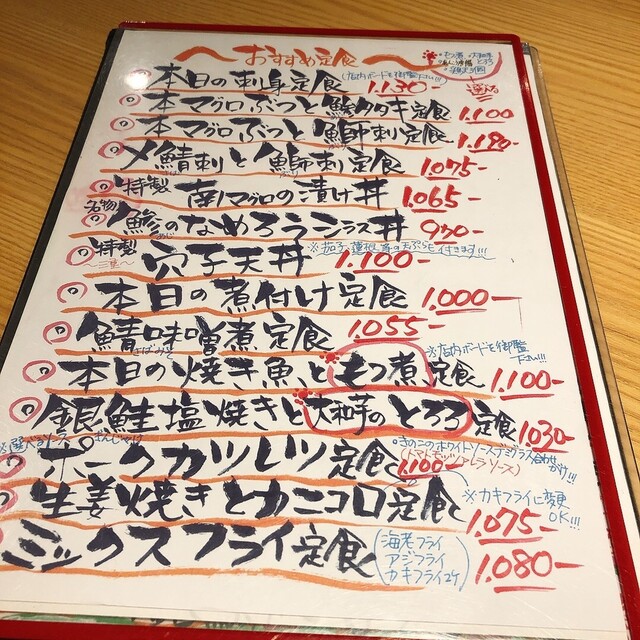 おすすめ定食
本日の刺身定食 (店内ボードを御覧下さい!!!) 1.130-
本マグロぶつと鯵タタキ定食 1.100
本マグロぶつと鰤刺定食 1.190-
〆鯖刺と鰤刺定食 1.075-
特製 南マグロの漬け丼 1.065-
名物 鯵のなめろうシラス丼 950-
特製 穴子天丼 1.100-
※茄子、蓮根、等の天ぷらも付きます!!!
本日の煮付け定食 1.000-
鯖味噌煮定食 1.055-
さばみそ
※店内ボードを御覧下さい!!!
本日の焼き魚ともつ煮定食 1.100-
銀鮭塩焼きと大和芋のとろろ定食 1.030-
ぎんじゃけ
※選べるソース
ポークカツレツ定食 1.100-
きのこのホワイトソース・デミグラス合わせがけ!!
(トマト・モッツァレラソース)
生姜焼きとカニコロ定食 1.075-
※カキフライに変更OK!!!
ミックスフライ定食 (海老フライ アジフライ カキフライ2ケ) 1.080-